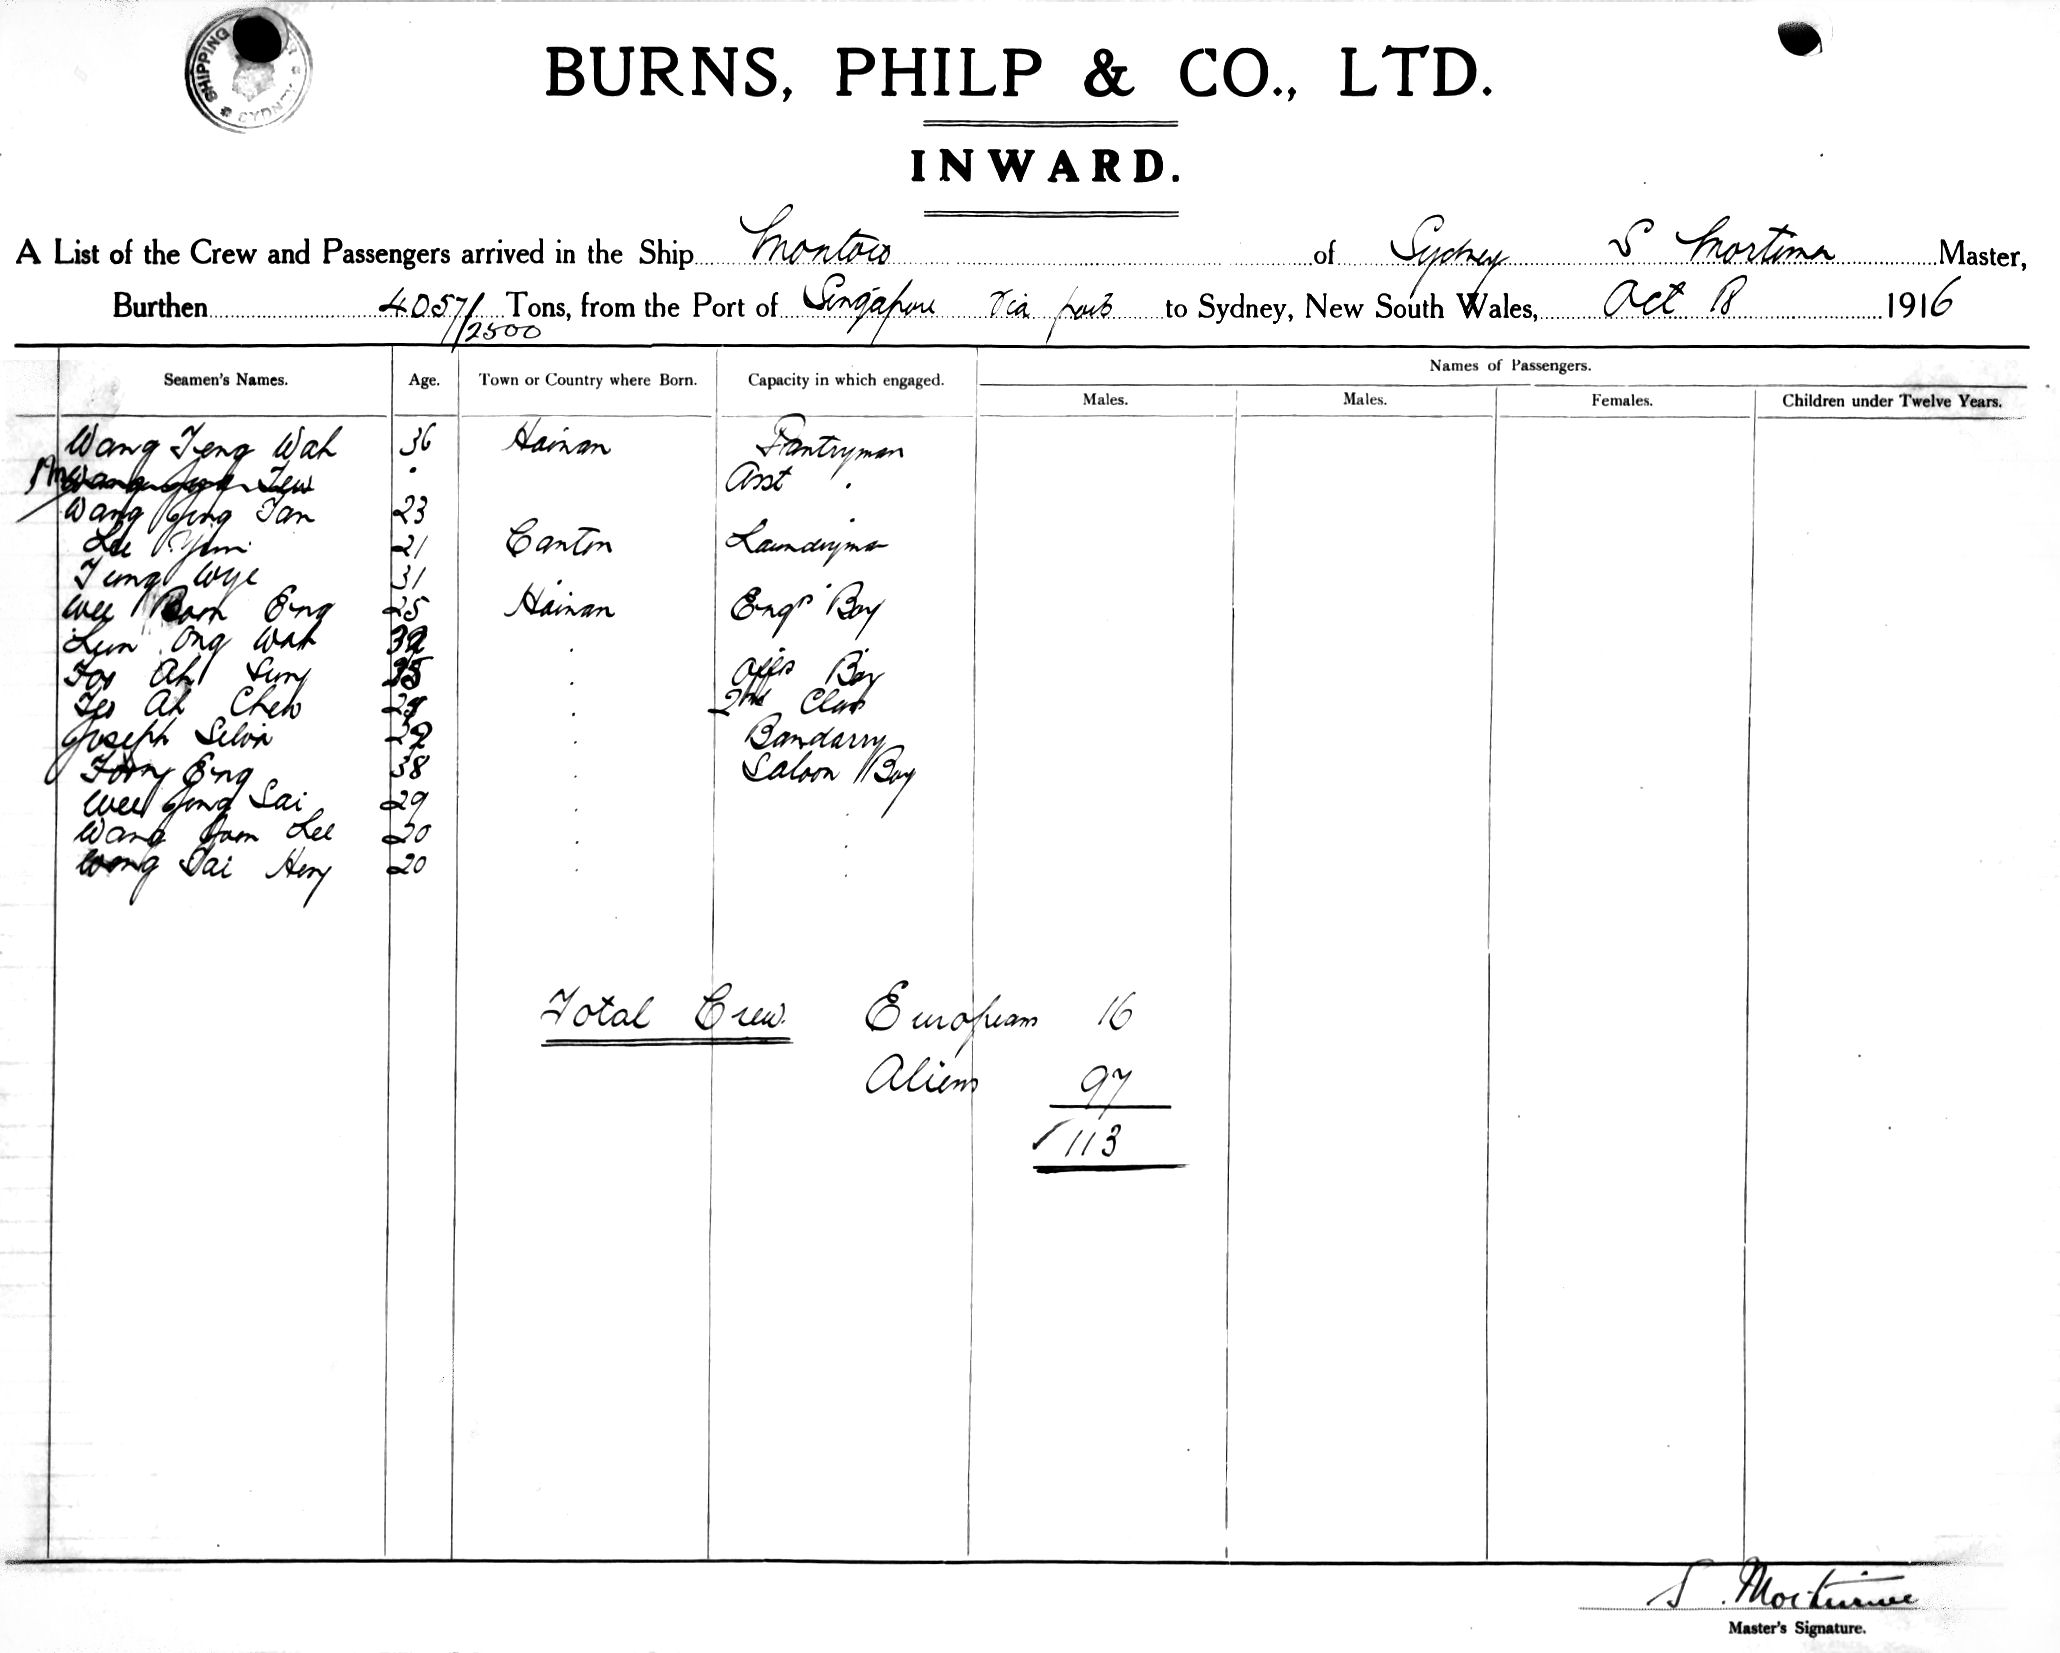 SHIPPING SYDNEY
BURNS, PHILP & CO., LTD.
INWARD.
A List of the Crew and Passengers arrived in the Ship Montoro of Sydney S Mortimer Master,
Burthen 4057/2500 Tons, from the Port of Singapore via ports to Sydney, New South Wales, Oct 18 1916
Names of Passengers.
Seamen's Names. Age. Town or Country where Born. Capacity in which engaged. Males. Males. Females. Children under Twelve Years.
Wang Teng Wah 36 Hainan Pantryman
Asst "
Wang Jing Tan 23
Lee Yim 21 Canton Laundryman
Tung Wye 31
Wee Boon Eng 25 Hainan Engrs Boy
Lim Ong Wah
Foo Ah Sung 35 Offs Boy
Teo Ah Chew 2nd Class
Joseph Silva Bandarry
Foong Eng 38 Saloon Boy
Wee Jong Sai 29
Wang Yoon Lee 20
Wong Tai Heng 20
Total Crew. Europeans 16
Aliens 97
113
S. Mortimer
Master's Signature.